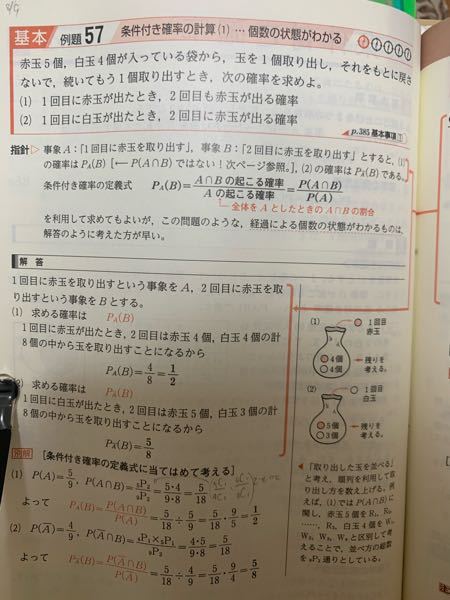 基本 例題 57 条件付き確率の計算 (1) … 個数の状態がわかる
赤玉5個，白玉4個が入っている袋から，玉を1個取り出し，それをもとに戻さ
ないで，続いてもう1個取り出すとき，次の確率を求めよ。
(1) 1回目に赤玉が出たとき，2回目も赤玉が出る確率
(2) 1回目に白玉が出たとき，2回目に赤玉が出る確率
p.385 基本事項 1
指針 ▷ 事象A：「1回目に赤玉を取り出す」，事象B：「2回目に赤玉を取り出す」とすると，(1)
の確率は P_A(B) [← P(A∩B) ではない！次ページ参照。]，(2)の確率は P_Ā(B) である。
条件付き確率の定義式 P_A(B)=A∩Bの起こる確率/Aの起こる確率=P(A∩B)/P(A)
全体をAとしたときのA∩Bの割合
を利用して求めてもよいが，この問題のような，経過による個数の状態がわかるものは，
解答のように考えた方が早い。
解答
1回目に赤玉を取り出すという事象をA，2回目に赤玉を取
り出すという事象をBとする。
(1) 求める確率は P_A(B)
1回目に赤玉が出たとき，2回目は赤玉4個，白玉4個の計
8個の中から玉を取り出すことになるから
P_A(B)=4/8=1/2
(2) 求める確率は P_Ā(B)
1回目に白玉が出たとき，2回目は赤玉5個，白玉3個の計
8個の中から玉を取り出すことになるから
P_Ā(B)=5/8
別解 [条件付き確率の定義式に当てはめて考える]
(1) P(A)=5/9，P(A∩B)=₅P₂/₉P₂=5・4/9・8=5/18
よって P_A(B)=P(A∩B)/P(A)=5/18÷5/9=5/18・9/5=1/2
(2) P(Ā)=4/9，P(Ā∩B)=₄P₁×₅P₁/₉P₂=4・5/9・8=5/18
よって P_Ā(B)=P(Ā∩B)/P(Ā)=5/18÷4/9=5/18・9/4=5/8
(1)
1回目
赤玉
4個
4個
残りを
考える。
(2)
1回目
白玉
5個
3個
残りを
考える。
◀「取り出した玉を並べる」
と考え，順列を利用して取
り出し方を数え上げる。例
えば，(1)では P(A∩B) に
関し，赤玉5個をR₁，R₂，
……，R₅，白玉4個をW₁，
W₂，W₃，W₄ と区別して考
えることで，並べ方の総数
を ₉P₂ 通りとしている。